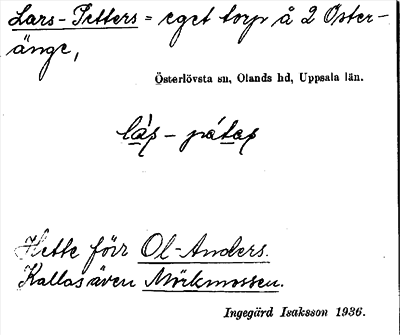 Lars-Petters = eget torp å 2 Öster-
änge,
Österlövsta sn, Olands hd, Uppsala län.
Hette förr Ol-Anders.
Kallas även Mörkmossen.
Ingegärd Isaksson 1936.